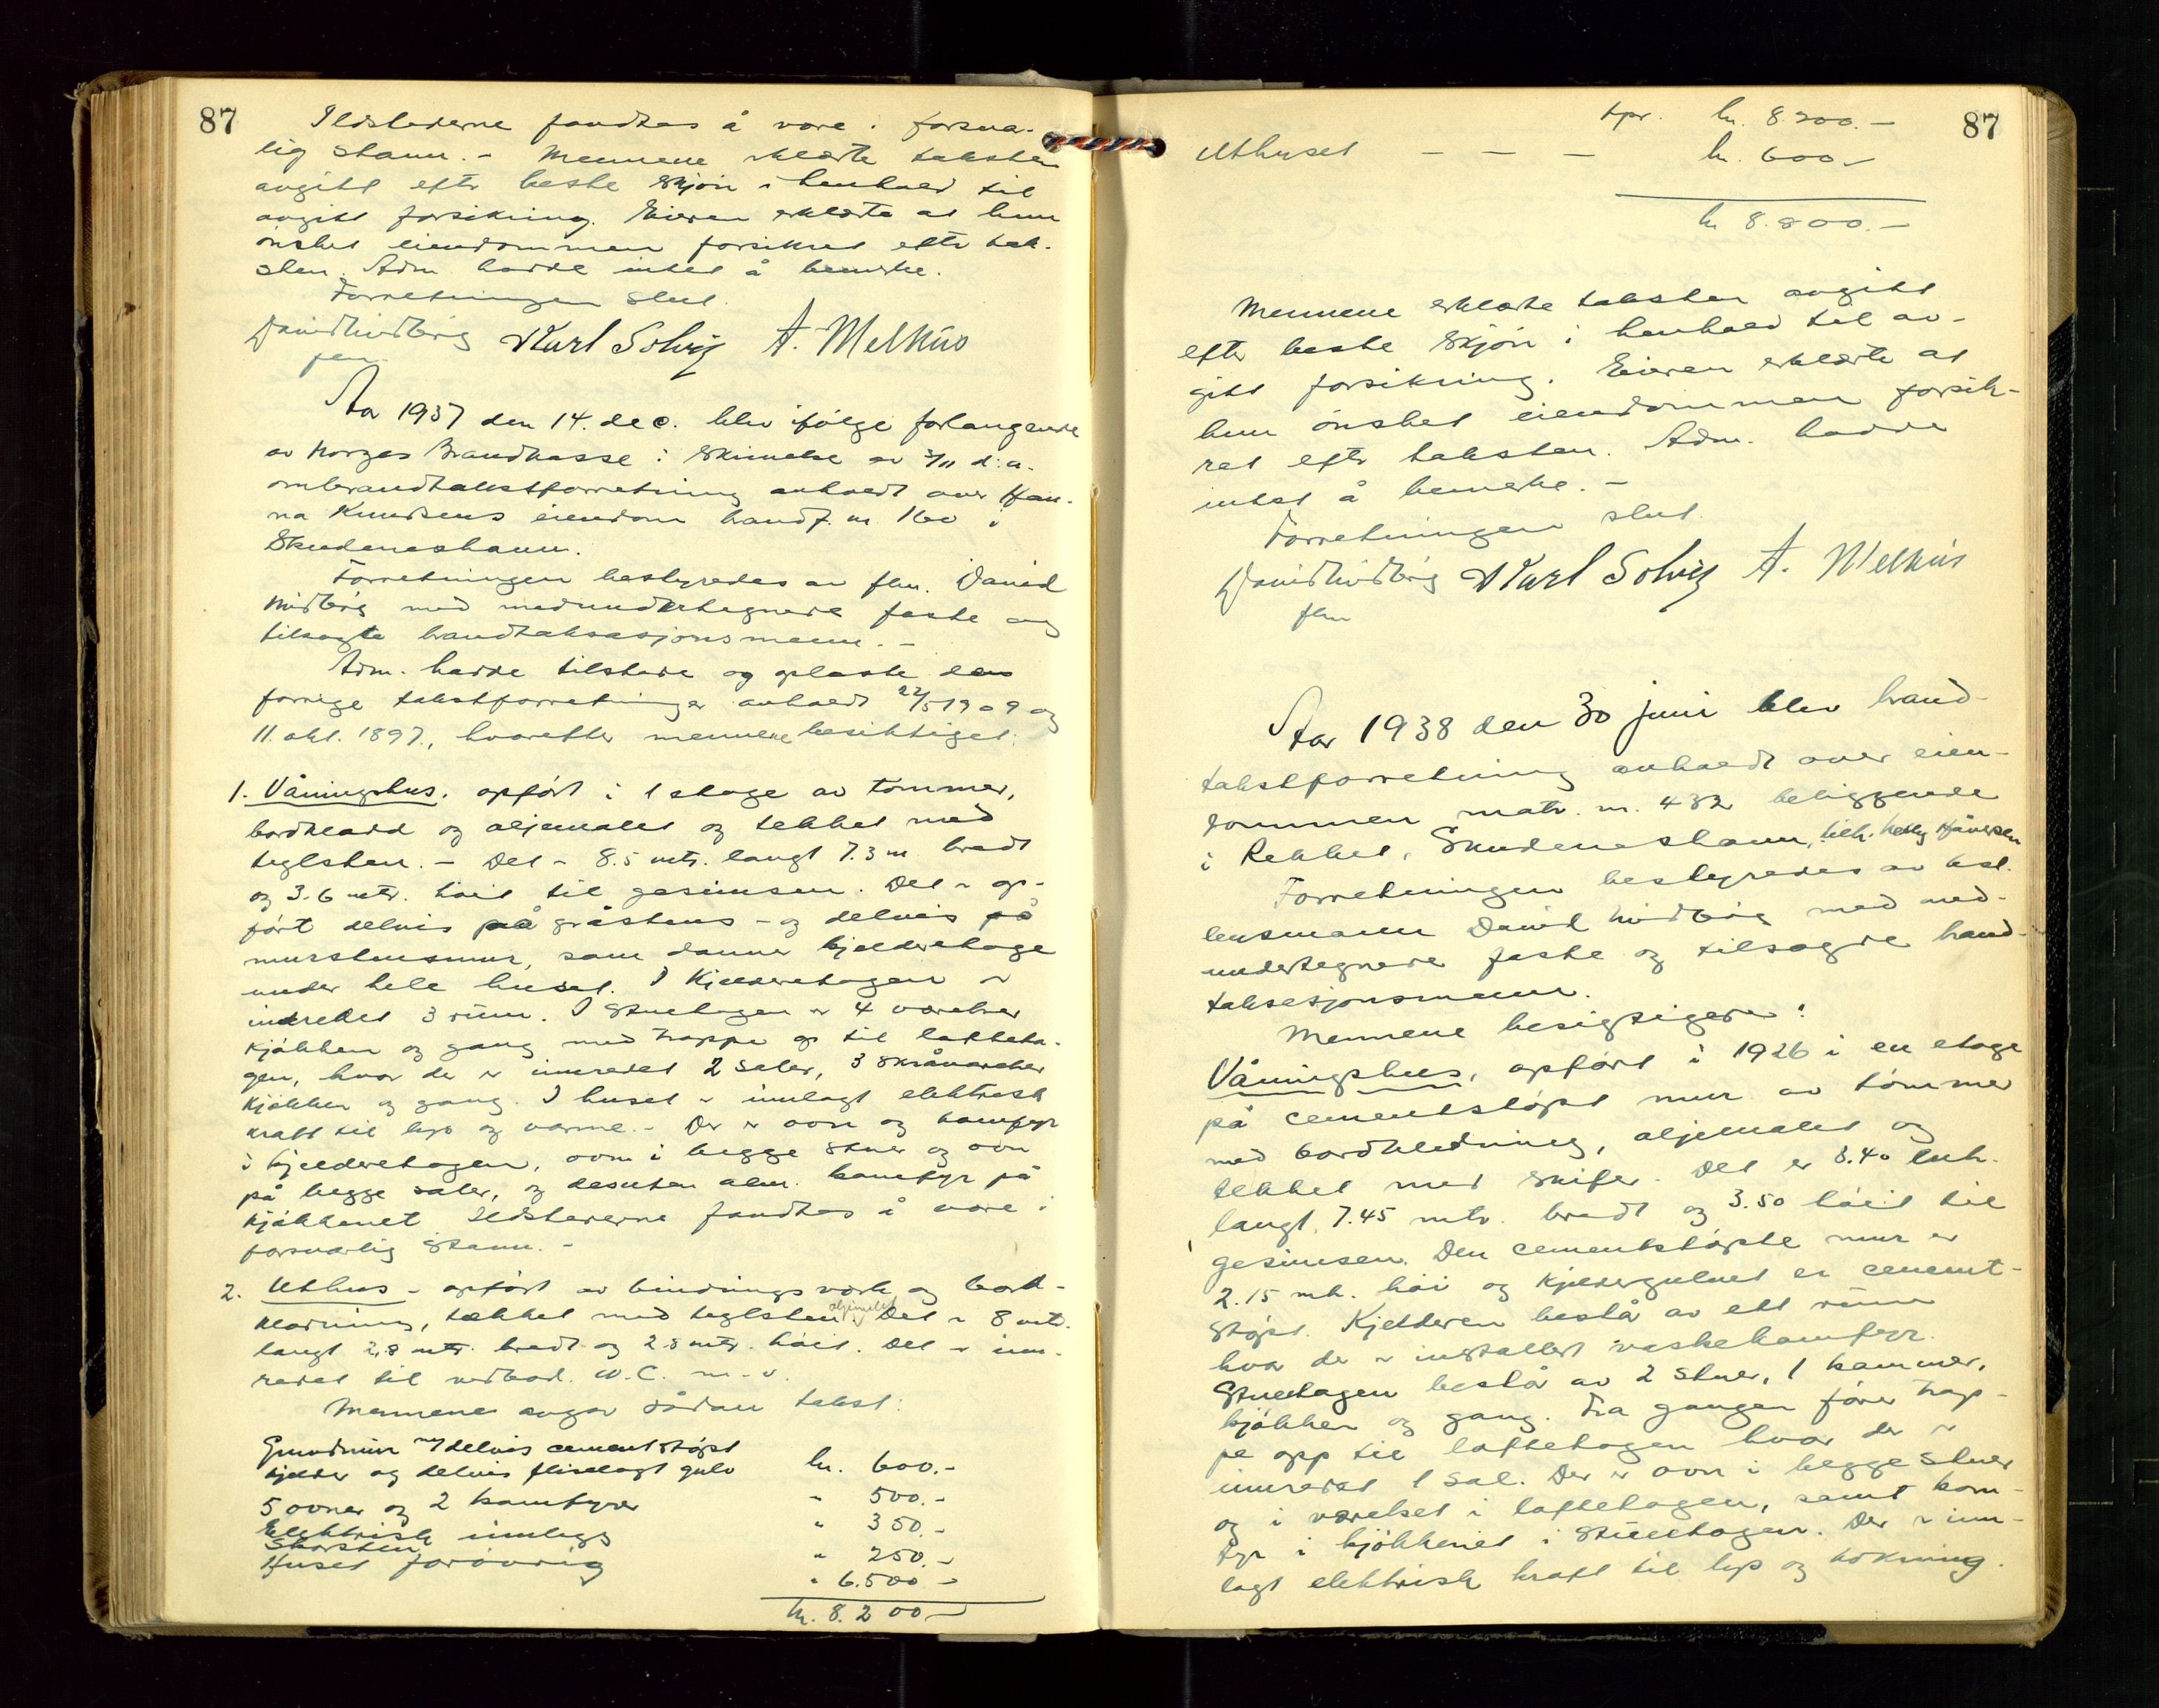 87
Ildstederne fandtes å være i forsva-
lig stann. - Mennene erklærte taksten
avgitt efter beste skjøn i henhold til
avgitt forsikring. Eieren erklærte at hun
ønsket eiendommen forsikret efter tak-
sten. Adm. hadde intet å bemerke.
Forretningen slut.
David Hidberg Karl Solvig A. Melhus
flm.
Aar 1937 den 14. dec. blev ifølge forlangende
av Norges Brandkasse i skrivelse av 3/11 d.a.
ombrandtakstforretning avholdt over Han-
na Knudsens eiendom brandf. nr. 160 i
Skudeneshavn.
Forretningen bestyredes av flm. David
Hidberg med medundertegnede faste og
tilsagte brandtaksasjonsmenn. -
Adm. hadde tilstede og oplæste den
forrige takstforretninger avholdt 22/5 1909 og
11. okt. 1897, hvorefter mennene besiktiget:
1. Våningshus. opført i 1 etage av tømmer,
bordklædd og oljemalet og tekket med
teglsten. - Det er 8.5 mtr. langt 7.3 m bredt
og 3.6 mtr. høit til gesimsen. Det er op-
ført delvis på gråstens - og delvis på
murstensmur, som danner kjelderetage
under hele huset. I Kjelderetagen er
innredet 3 rum. I Stuetagen er 4 værelser
kjøkken og gang med trappe op til lofteta-
gen, hvor der er innredet 2 saler, 3 skråværelser
kjøkken og gang. I huset er innlagt elektrisk
kraft til lys og varme. - Der er ovn og komfyr
i kjelderetagen, ovn i begge stuer og ovn
på begge saler, og desuten alm. komfyr på
kjøkkenet. Ildstederne fandtes å være i
forsvarlig stann. -
2. Uthus - opført av bindingsverk og bord-
klædning, tekket med teglsten oljemalet. Det er 8 mtr.
langt 2,8 mtr. bredt og 2.8 mtr. høit. Det er inn-
redet til vedbod. W.C. m.v.
Mennene avgav sådan takst:
Grundmur med delvis cementstøpt
kjelder og delvis fliselagt gulv kr. 600.-
5 ovner og 2 komfyrer " 500.-
Elektrisk innlegg " 350.-
Skorsten " 250.-
Huset forøvrig " 6.500.-
kr. 8.200.-
87
tpr. kr. 8.200.-
Uthuset - - - kr. 600.-
kr 8.800.-
Mennene erklærte taksten avgitt
efter beste skjøn i henhold til av-
gitt forsikring. Eieren erklærte at
hun ønsket eiendommen forsik-
ret efter taksten. Adm. hadde
intet å bemerke. -
Forretningen slut.
David Hidberg Karl Solvig A. Melhus
flm
Aar 1938 den 30 juni blev brand-
takstforretning avholdt over eien-
dommen matr. nr. 432 beliggende
i Rekket, Skudeneshavn, tilh. Håversen
Forretningen bestyredes av kst.
lensmann David Hidberg med med-
undertegnede faste og tilsagte brand-
taksasjonsmenn.
Mennene besigtigede:
Våningshus, opført i 1926 i en etage
på cementstøpt mur av tømmer
med bordkledning, oljemalet og
tekket med skifer. Det er 8.40 mtr.
langt, 7.45 mtr. bredt og 3.50 høit til
gesimsen. Den cementstøpte mur er
2.15 mtr. høi og kjeldergulvet er cement-
støpt. Kjelderen bestå av ett rum
hvor der er installert vaskekomfyr.
Stuetagen bestå av 2 stuer, 1 kammer,
kjøkken og gang. Fra gangen fører trap-
pe opp til loftetagen hvor der er
innredet 1 sal. Der er ovn i begge stuer
og i værelset i loftetagen, samt kom-
fyr i kjøkkenet i stuetagen. Der er inn-
lagt elektrisk kraft til lys og kokning.